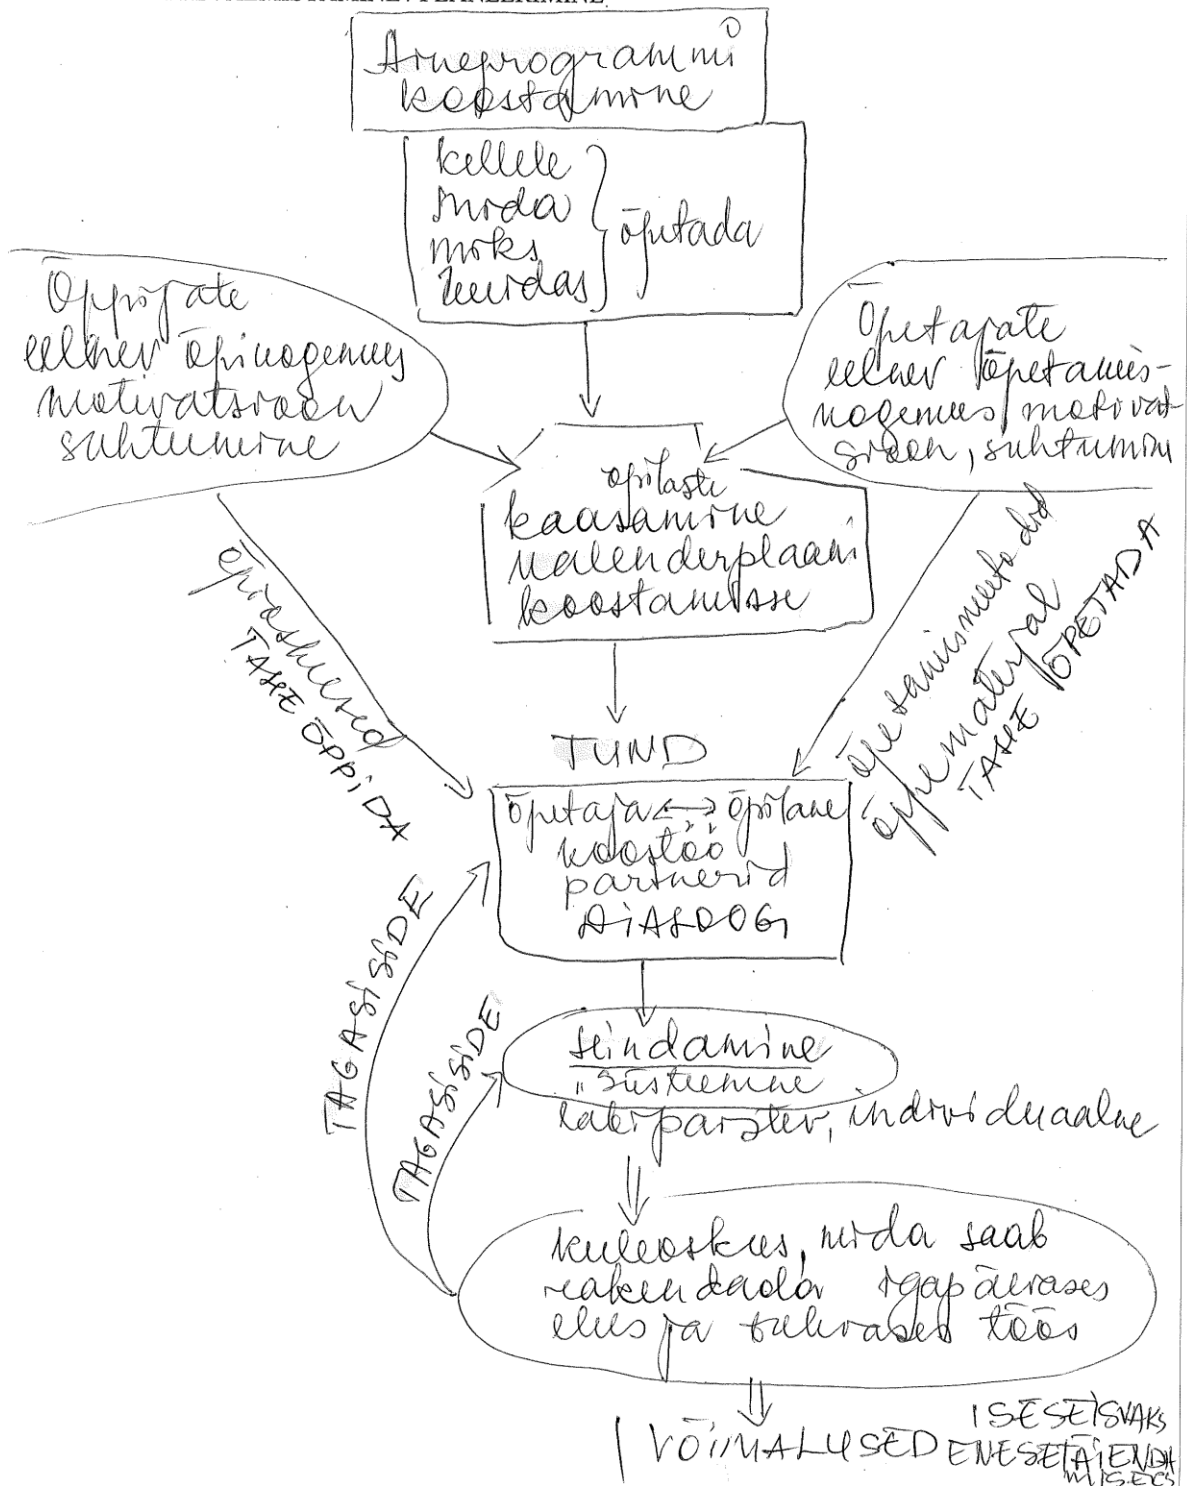 Aineprogrammi
koostamine
kellele
mida
miks
kuidas
õpetada
Õppijate
eelnev õpikogemus
motivatsioon
suhtumine
Õpetajate
eelnev õpetamis-
kogemus, motivat-
sioon, suhtumine
õpilaste
kaasamine
kalenderplaani
koostamisse
õpioskused
TAHE ÕPPIDA
õpetamismeetodid
õppematerjal
TAHE ÕPETADA
TUND
õpetaja ↔ õpilane
koostöö
partnerid
DIALOOG
TAGASISIDE
TAGASISIDE
hindamine
individuaalne
keeleoskus, mida saab
rakendada igapäevases
elus ja tööös
VÕIMALUSED
ISESEISVAKS
ENESETÄIENDA
MISEKS